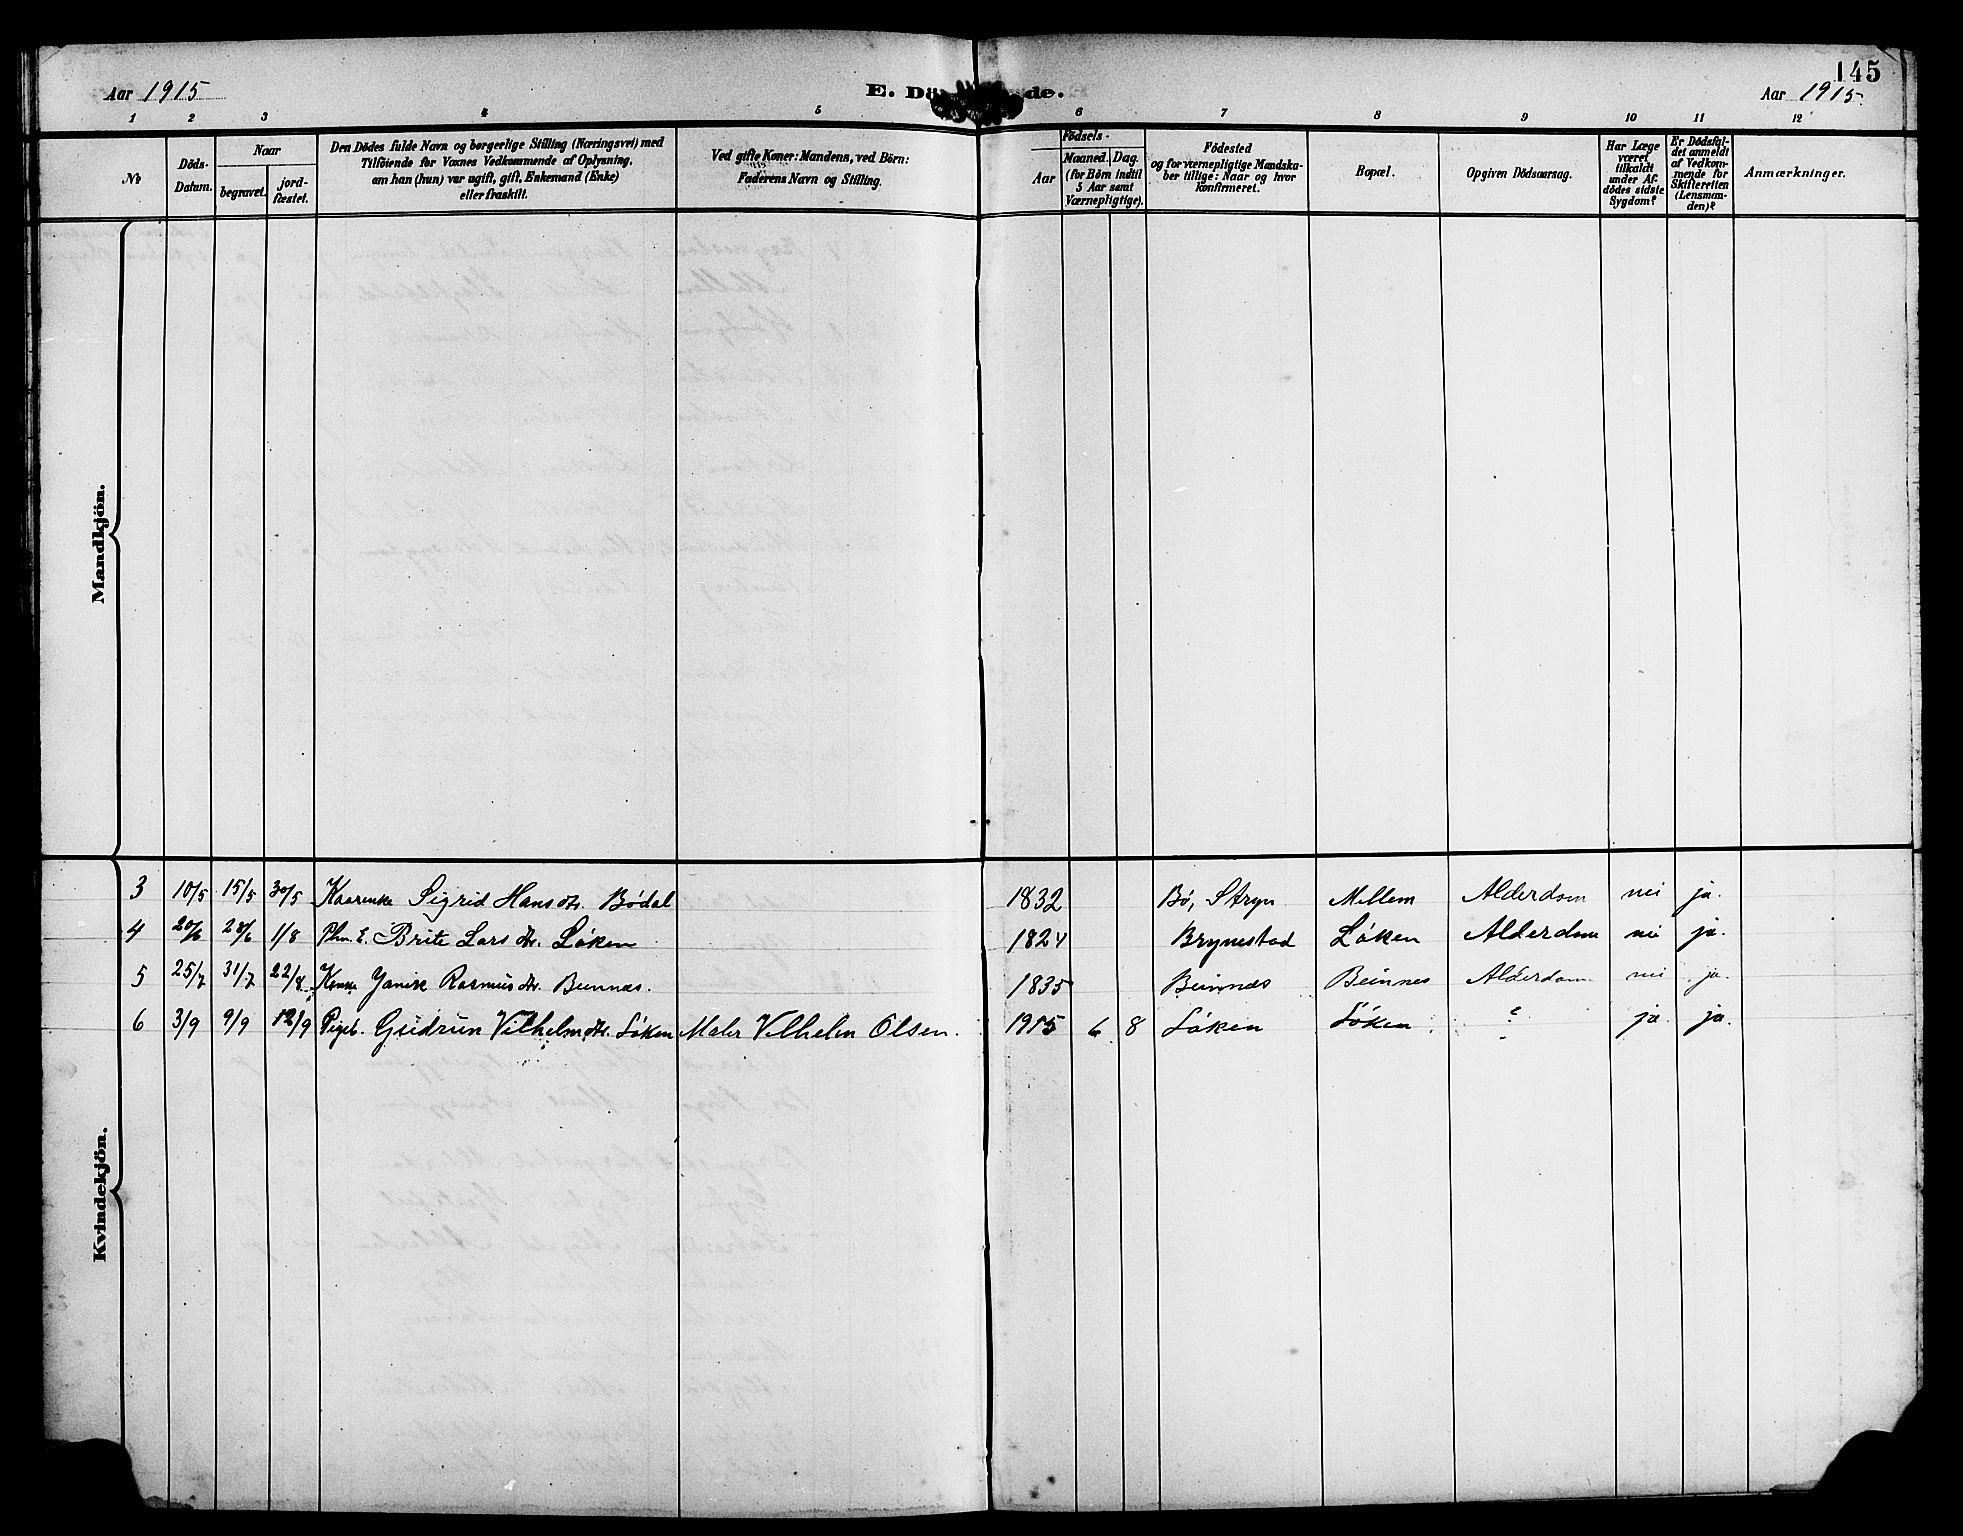 145
Aar 1915
E. Dö de.
Aar 1915
1 2 3 4 5 6 7 8 9 10 11 12
№
Döds-Datum.
Naar
begravet.
jord-fæstet.
Den Dödes fulde Navn og borgerlige Stilling (Næringsvei) med
Tilföiende for Voxnes Vedkommende af Oplysning,
om han (hun) var ugift, gift, Enkemand (Enke)
eller fraskilt.
Ved gifte Koner: Mandens, ved Börn:
Faderens Navn og Stilling.
Födsels-
Aar
Maaned. Dag.
(for Börn indtil
5 Aar samt
Værnepligtige).
Födested
og for værnepligtige Mandska-
ber tillige: Naar og hvor
konfirmeret.
Bopæl.
Opgiven Dödsaarsag.
Har Læge
været
tilkaldt
under Af-
dödes sidste
Sygdom?
Er Dödsfal-
det anmeldt
af Vedkom-
mende for
Skifteretten
(Lensman-
den)?
Anmærkninger.
Mandkjön.
Kvindekjön.
3 10/5 15/5 30/5 Kaarenke Sigrid Hansdtr. Bödal 1832 Bö, Stryn Mellem Alderdom nei ja.
4 20/6 28/6 1/8 Brite Larsdtr. Löken 1824 Brynestad Löken Alderdom nei ja.
5 25/7 31/7 22/8 Rasmusdtr. Beinnes. 1835 Beinnes Beinnes Alderdom nei ja.
6 3/9 9/9 12/9 Pigeb. Gudrun Vilhelmdtr. Löken Maler Vilhelm Olsen. 1915 6 8 Löken Löken ? ja ja.